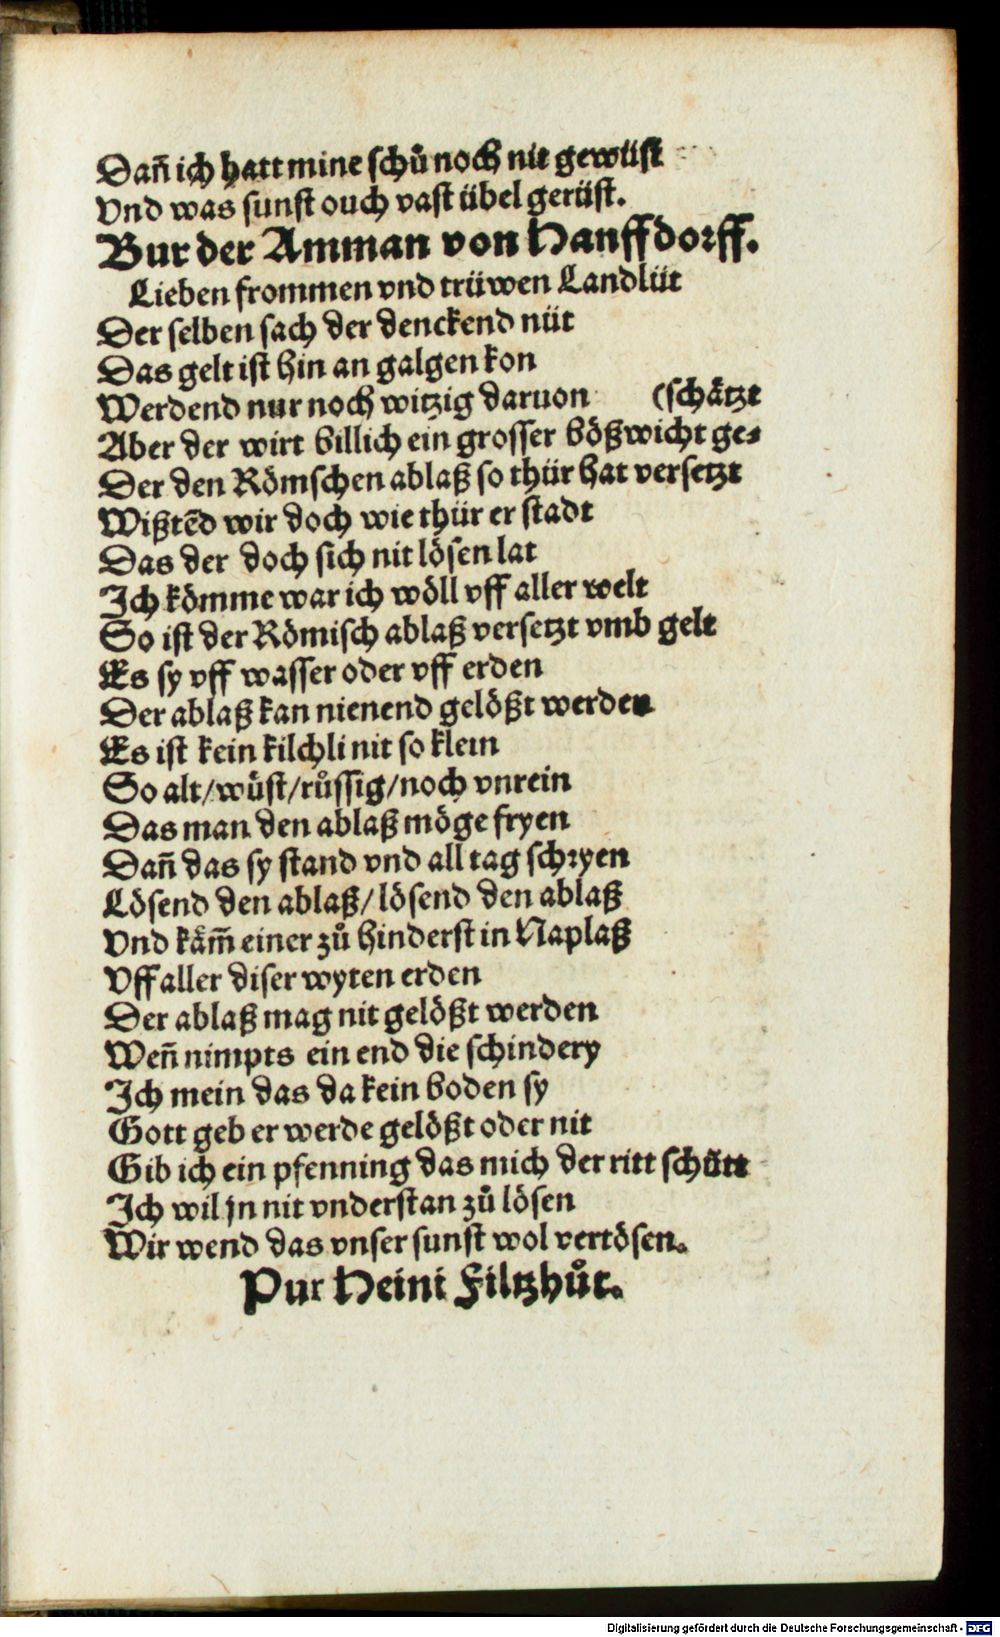 Dañ ich hatt mine schů noch nit gewüst
Vnd was sunst ouch vast übel gerüst.
Bur der Amman von Hanffdorff.
Lieben frommen vnd trüwen Landlüt
Der selben sach der denckend nüt
Das gelt ist hin an galgen kon
Werdend nur noch witzig daruon (schätzt
Aber der wirt billich ein grosser bößwicht ge⸗
Der den Römschen ablaß so thür hat versetzt
Wißtēd wir doch wie thür er stadt
Das der doch sich nit lösen lat
Ich kömme war ich wöll vff aller welt
So ist der Römisch ablaß versetzt vmb gelt
Es sy vff wasser oder vff erden
Der ablaß kan nienend gelößt werden
Es ist kein kilchli nit so klein
So alt/wüst/růssig/noch vnrein
Das man den ablaß möge fryen
Dañ das sy stand vnd all tag schryen
Lösend den ablaß/ lösend den ablaß
Vnd käm̄ einer zů hinderst in Naplaß
Vff aller diser wyten erden
Der ablaß mag nit gelößt werden
Weñ nimpts ein end die schindery
Ich mein das da kein boden sy
Gott geb er werde gelößt oder nit
Gib ich ein pfenning das mich der ritt schütt
Ich wil jn nit vnderstan zů lösen
Wir wend das vnser sunst wol vertösen.
Pur Heini Filtzhůt.
Digitalisierung gefördert durch die Deutsche Forschungsgemeinschaft - DFG